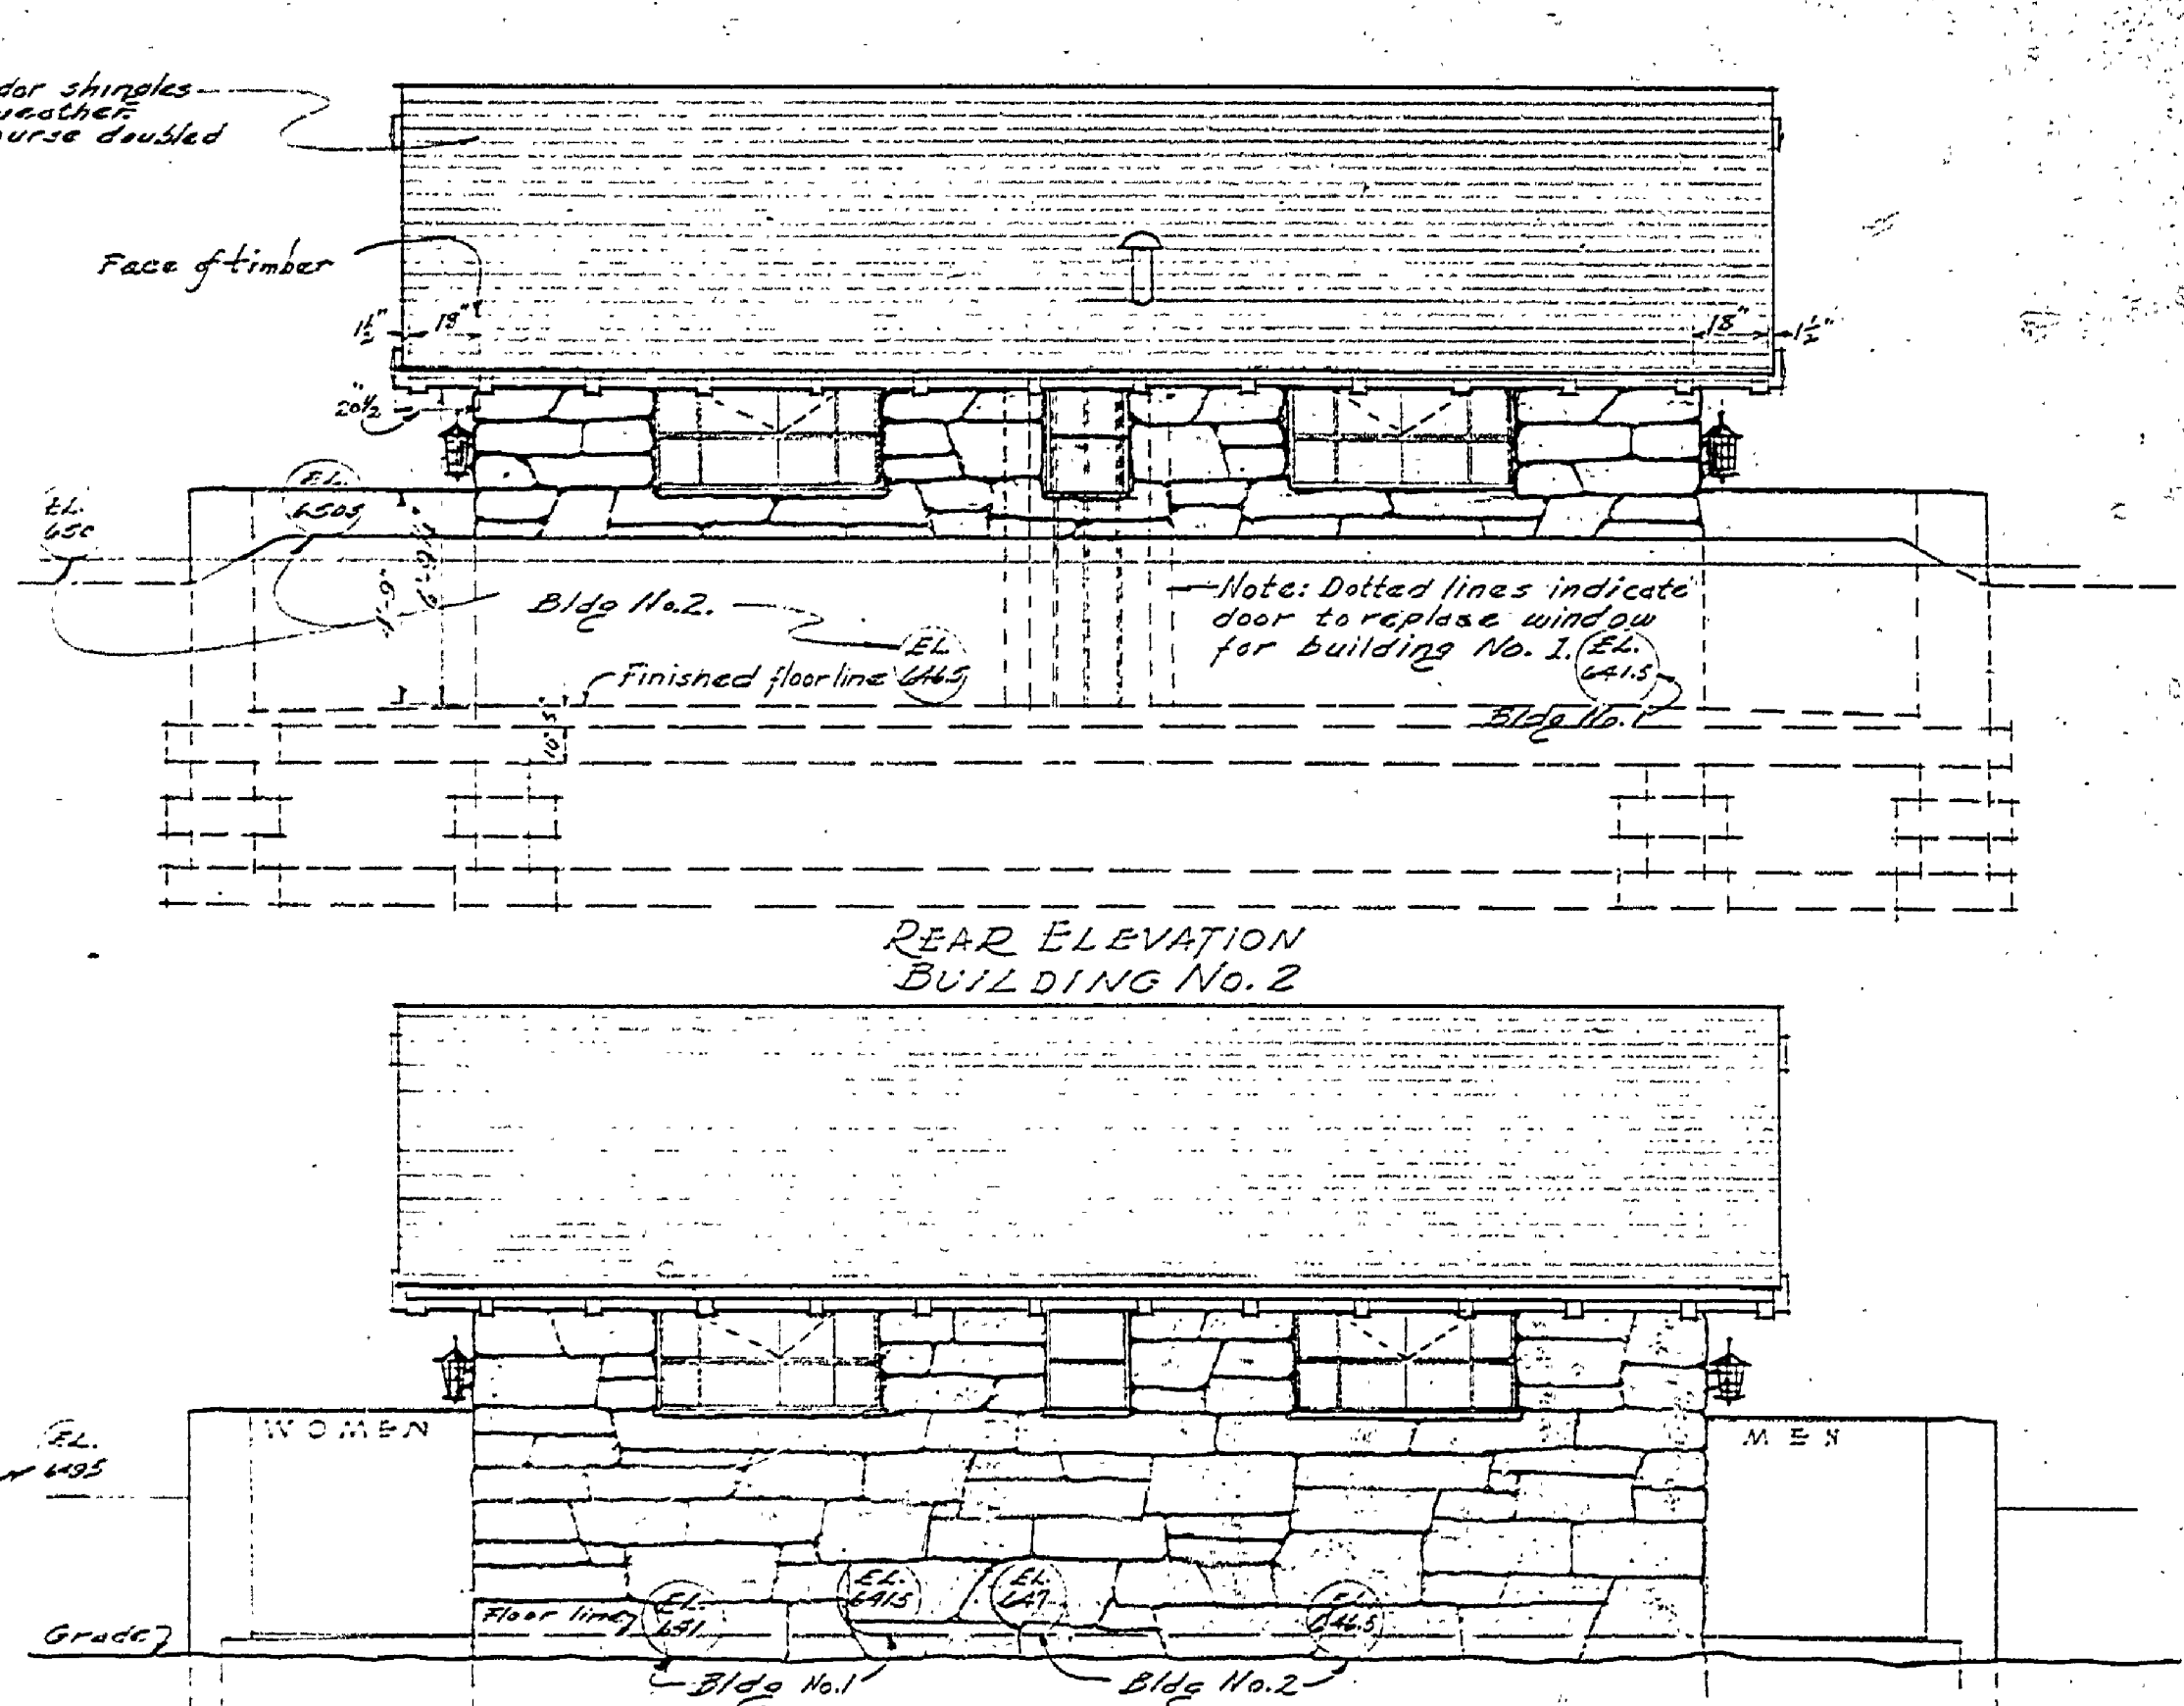 dar shingles
weather.
ourse doubled
Face of timber
1½"
18"
18"
1½"
20½"
EL.
650
EL.
650.5
4'-9"
Bldg No.2.
EL.
646.5
Finished floor line
Note: Dotted lines indicate
door to replase window
for building No. 1.
EL.
641.5
Bldg No.1
5"
10"
REAR ELEVATION
BUILDING No. 2
WOMEN
MEN
EL.
649.5
Floor line
EL.
EL.
641.5
EL.
647
EL.
646.5
Grade
Bldg No.1
Bldg No.2